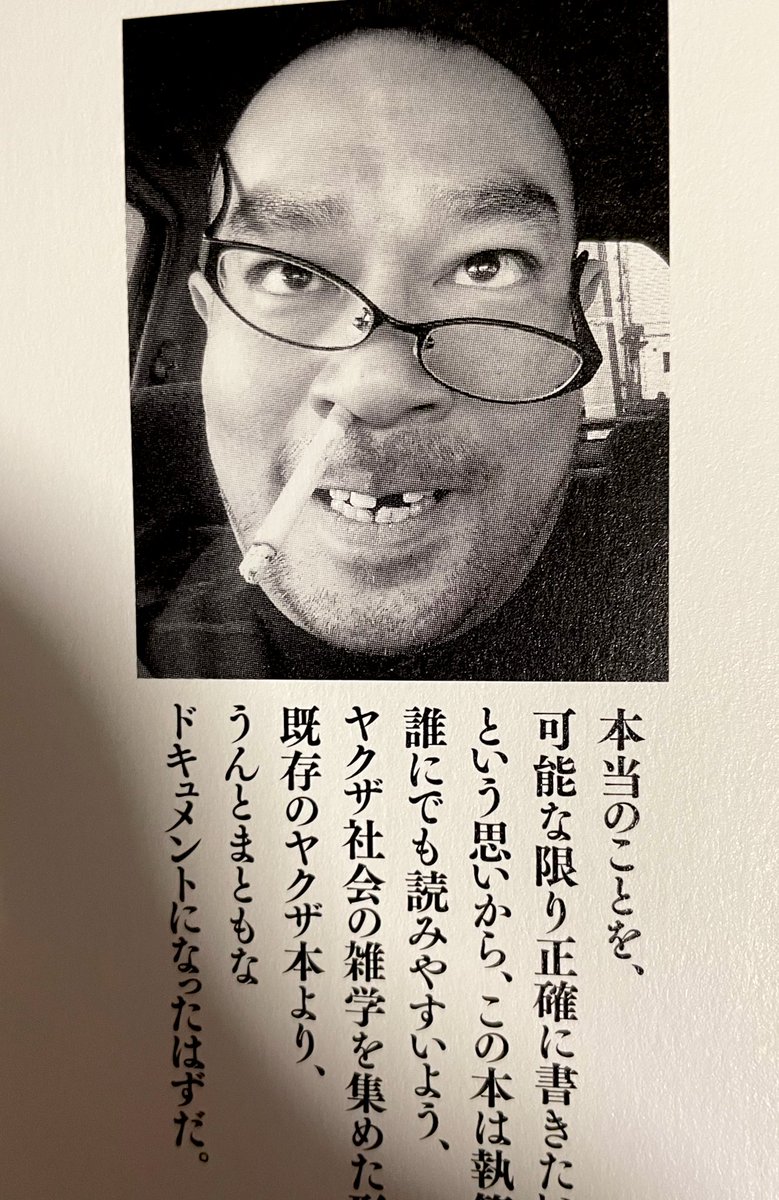 本当のことを、
可能な限り正確に書きた
という思いから、この本は執
誰にでも読みやすいよう、
ヤクザ社会の雑学を集めた
既存のヤクザ本より、
うんとまともな
ドキュメントになったはずだ。